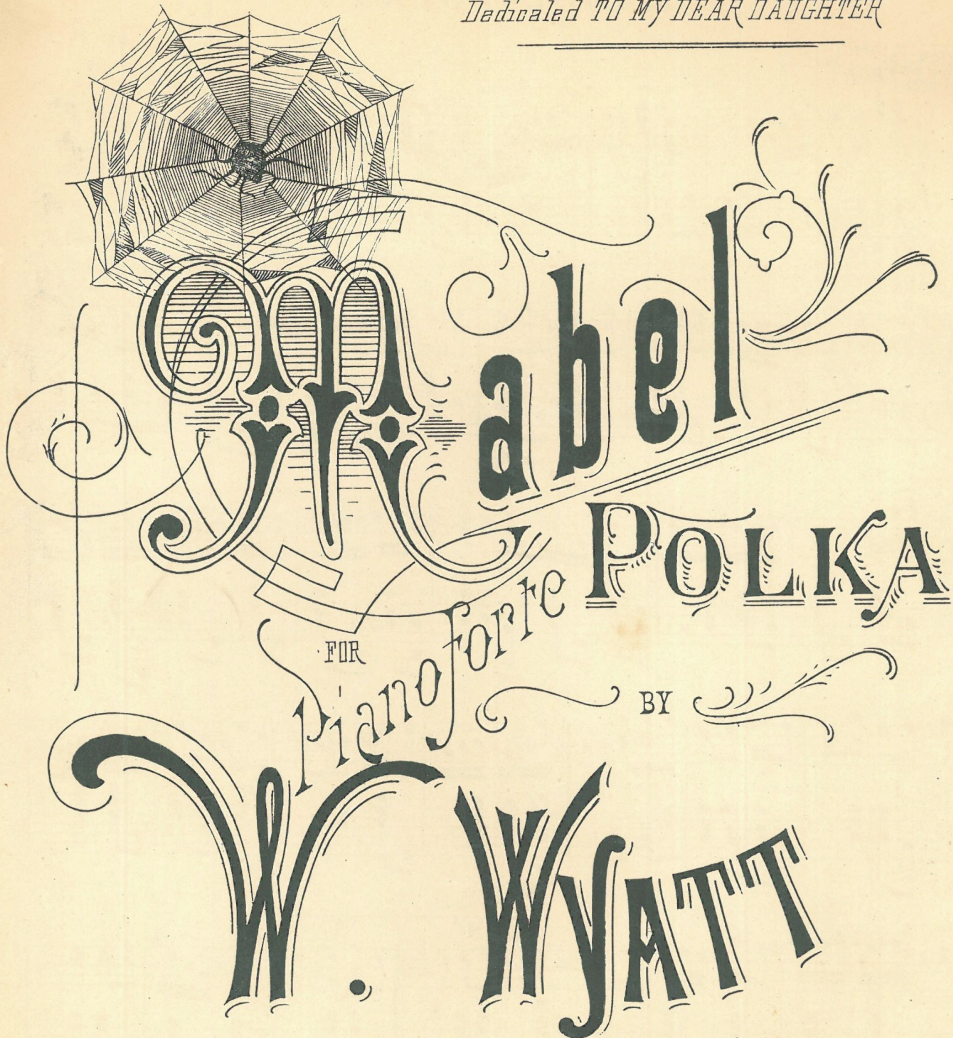 Dedicated TO MY DEAR DAUGHTER
Mabel
POLKA
FOR
Pianoforte
BY
W. WYATT